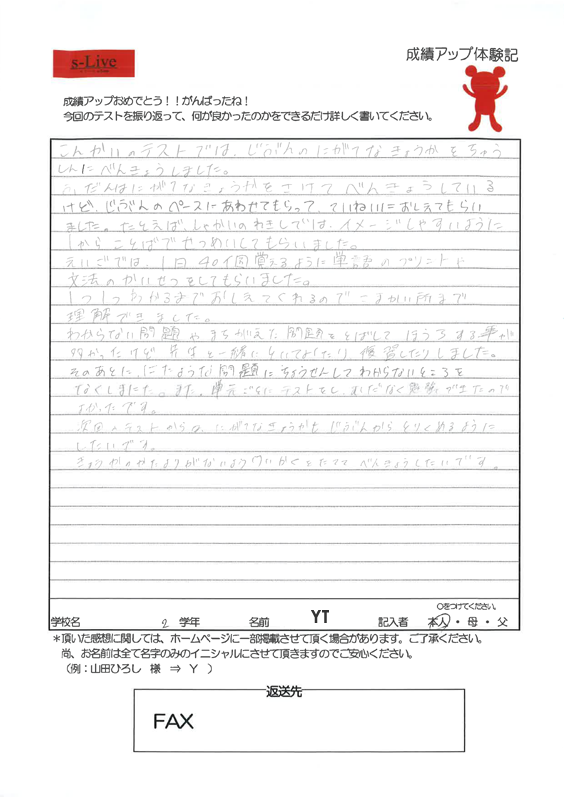 s-Live
成績アップ体験記
成績アップおめでとう！！がんばったね！
今回のテストを振り返って、何が良かったのかをできるだけ詳しく書いてください。
こんかいのテストでは、じぶんのにがてなきょうかをちゅう
しんにべんきょうしました。
ふだんはにがてなきょうかをさけてべんきょうしている
けど、じぶんのペースにあわせてもらって、ていねいにおしえてもらい
ました。たとえば、しゃかいのれきしでは、イメージしやすいように
1からことばでせつめいしてもらいました。
えいごでは、1日40個覚えるように単語のプリントや
文法のかいせつをしてもらいました。
1つ1つわかるまでおしえてくれるのでこまかい所まで
理解できました。
わからない問題やまちがえた問題をとばして ほうろする事が
多かったけど 先生と一緒に といてよくしたり、復習したりしました。
そのあとに、にたような問題にちょうせんしてわからないところを
なくしました。また、単元ごとにテストをし、むだなく勉強ができたので
よかったです。
次回のテストからは、にがてなきょうかもじぶんからとりくめるように
したいです。
きょうかのかたよりがないようけいかくをたててべんきょうしたいです。
○をつけてください。
学校名 2 学年 名前 YT 記入者 本人・母・父
＊頂いた感想に関しては、ホームページに一部掲載させて頂く場合があります。ご了承ください。
尚、お名前は全て名字のみのイニシャルにさせて頂きますのでご安心ください。
（例：山田ひろし 様 ⇒ Y ）
返送先
FAX